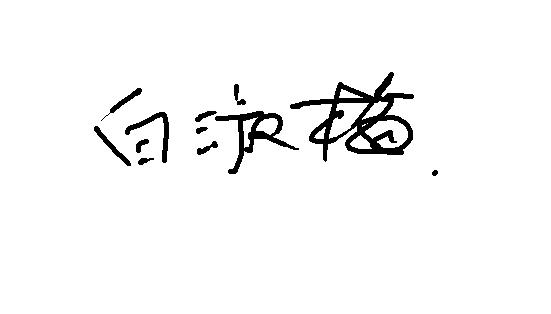 白淑梅.